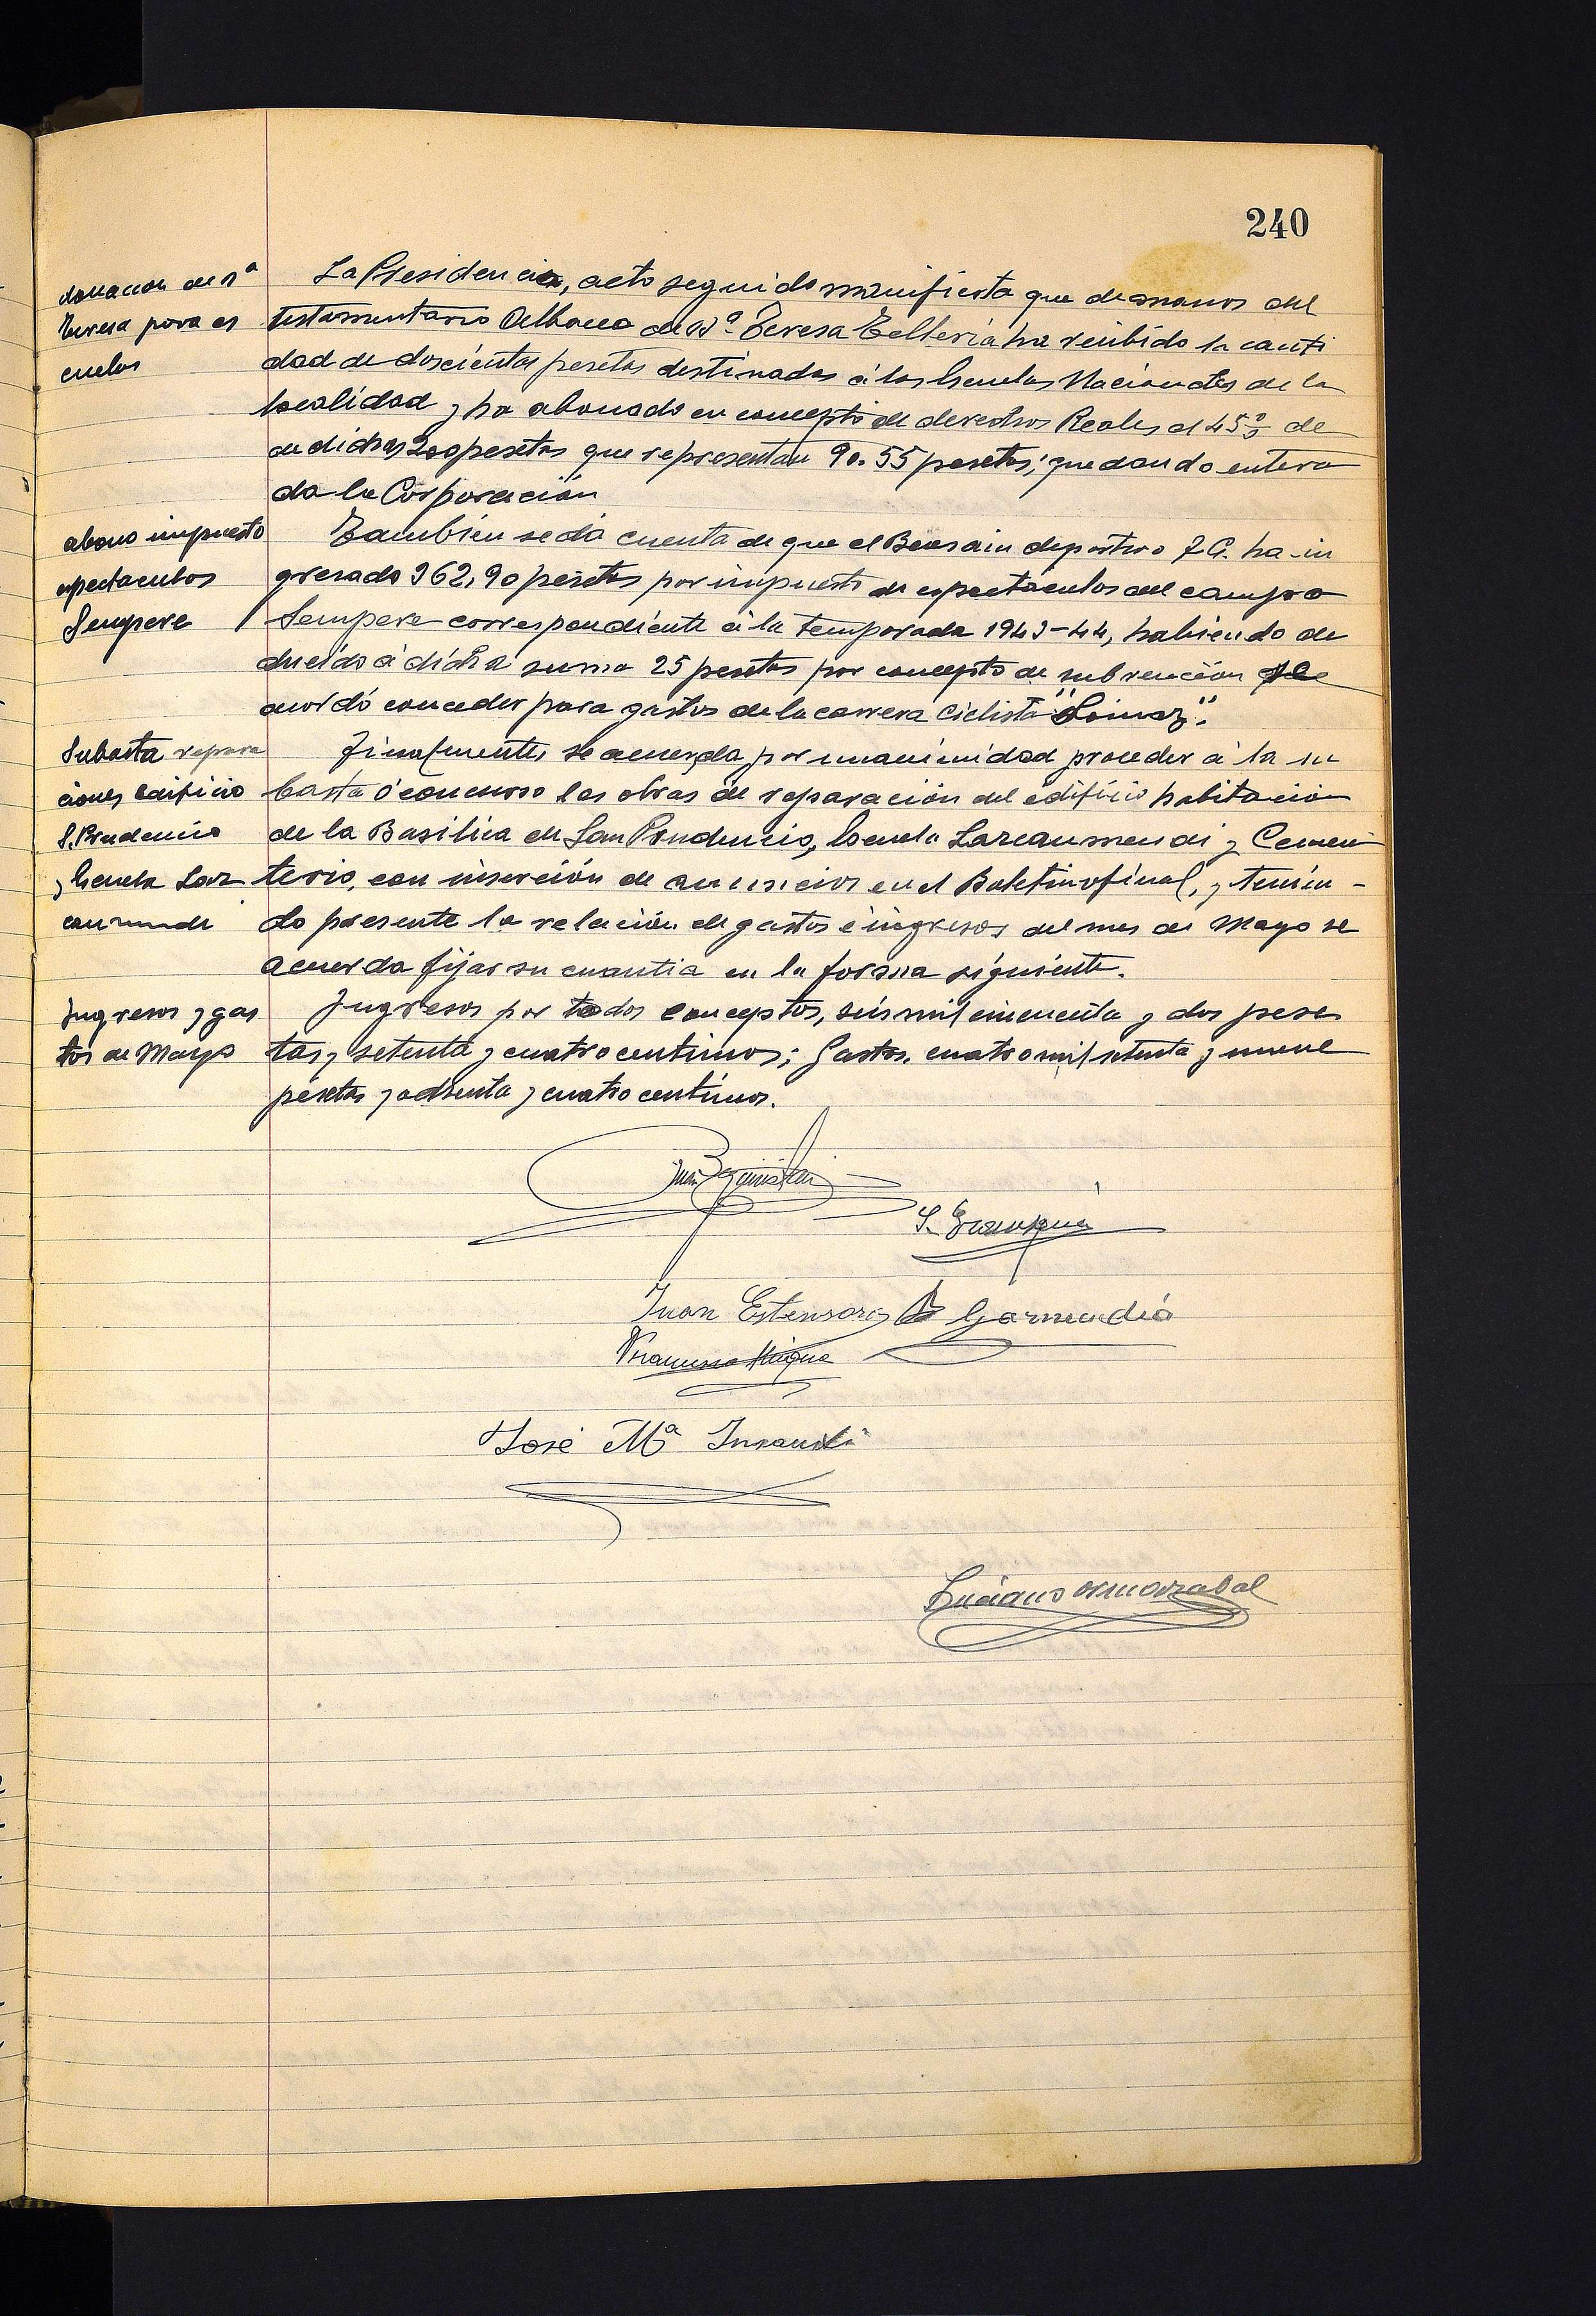 240
donacion de Dª
Teresa para es
cuelas
La Presidencia, acto seguido manifiesta que de manos del
testamentario Albacea de Dª Teresa Telleria ha recibido la canti
dad de doscientas pesetas destinadas á las Escuelas Nacionales de la
localidad y ha abonado en concepto de derechos Reales el 45 % de
de dichas 200 pesetas que representan 90.55 pesetas; quedando entera
da la Corporación
abono impuesto
espectaculos
Sempere
Tambien se dá cuenta de que el Beasain deportivo F.C. ha in
gresado 362,90 pesetas por impuesto de espectáculos del campo
Sempere correspondiente á la temporada 1943-44, habiendo de
ducido á dicha suma 25 pesetas por concepto de subvención se
acordó conceder para gastos de la carrera ciclista "Loinaz".
Subasta repara
ciones edificio
S. Prudencio
y Escuela Laz
caumendi
Finalmente, se acuerda por unanimidad proceder á la su
basta ó concurso las obras de reparación del edificio habitación
de la Basilica de San Prudencio, Escuela Lazcaumendi y Cemen
terio, con inserción de anuncios en el Boletin oficial, y tenien-
do presente la relación de gastos é ingresos del mes de Mayo se
acuerda fijar su cuantia en la forma siguiente.
Ingresos y gas
tos de Mayo
Ingresos por todos conceptos, seis mil cincuenta y dos pese
tas y setenta y cuatro centimos; Gastos, cuatro mil setenta y nueve
pesetas y ochenta y cuatro centimos.
Juan
S.
Juan Estensoro
Garmendia
Francisco
José Mª Insausti
Luciano Ormazabal